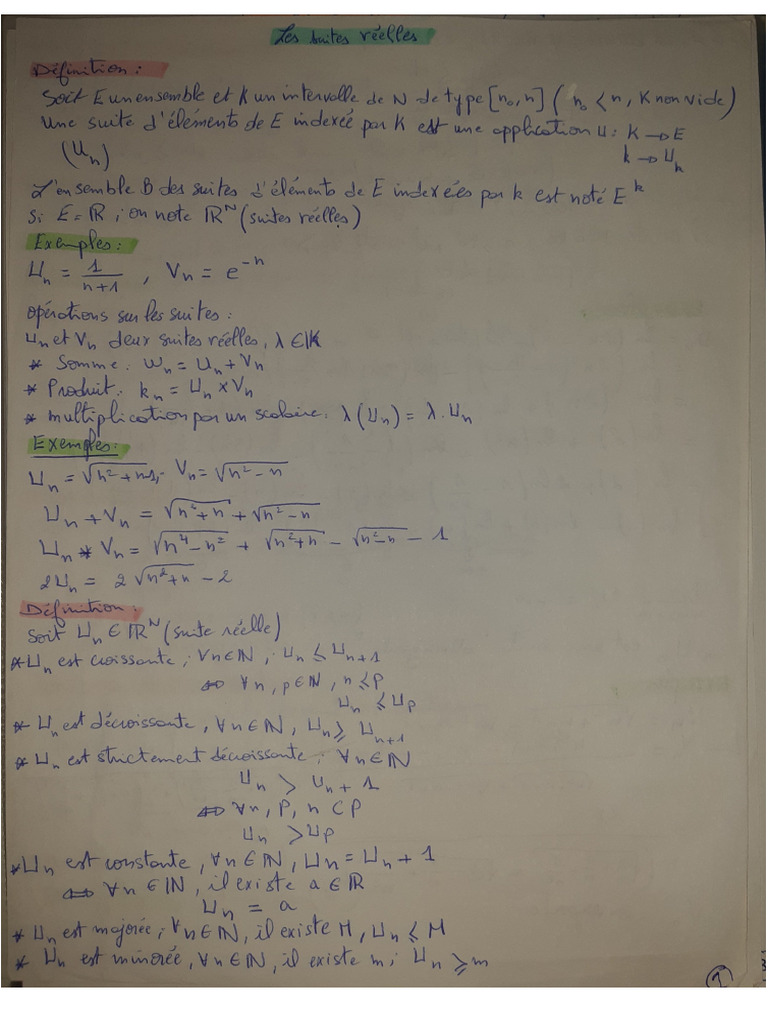 Les suites réelles
Définition :
Soit E un ensemble et K un intervalle de N de type [n₀, n] ( n₀ < n, K non vide)
Une suite d'éléments de E indexée par K est une application U : K → E
(Uₙ) k → Uₖ
L'ensemble B des suites d'éléments de E indexées par k est noté Eᵏ
Si E = ℝ ; on note ℝᴺ (suites réelles)
Exemples :
Uₙ = 1/(n+1) , Vₙ = e⁻ⁿ
opérations sur les suites :
Uₙ et Vₙ deux suites réelles, λ ∈ K
* Somme : Wₙ = Uₙ + Vₙ
* Produit : kₙ = Uₙ × Vₙ
* multiplication par un scalaire : λ (Uₙ) = λ . Uₙ
Exemples :
Uₙ = √(n² + n) - 1, Vₙ = √(n² - n)
Uₙ + Vₙ = √(n² + n) + √(n² - n)
Uₙ * Vₙ = √(n⁴ - n²) + √(n² + n) - √(n² - n) - 1
2Uₙ = 2 √(n² + n) - 2
Définition :
Soit Uₙ ∈ ℝᴺ (suite réelle)
* Uₙ est croissante ; ∀n ∈ ℕ ; Uₙ ≤ Uₙ₊₁
⇔ ∀ n, p ∈ ℕ, n ≤ p
Uₙ ≤ Up
* Uₙ est décroissante, ∀n ∈ ℕ, Uₙ ≥ Uₙ₊₁
* Uₙ est strictement décroissante ; ∀n ∈ ℕ
Uₙ > Uₙ + 1
⇔ ∀n, P, n < P
Uₙ > Up
* Uₙ est constante, ∀n ∈ ℕ, Uₙ = Uₙ + 1
⇔ ∀n ∈ ℕ, il existe a ∈ ℝ
Uₙ = a
* Uₙ est majorée ; ∀n ∈ ℕ, il existe M, Uₙ ≤ M
* Uₙ est minorée, ∀n ∈ ℕ, il existe m ; Uₙ ≥ m
1